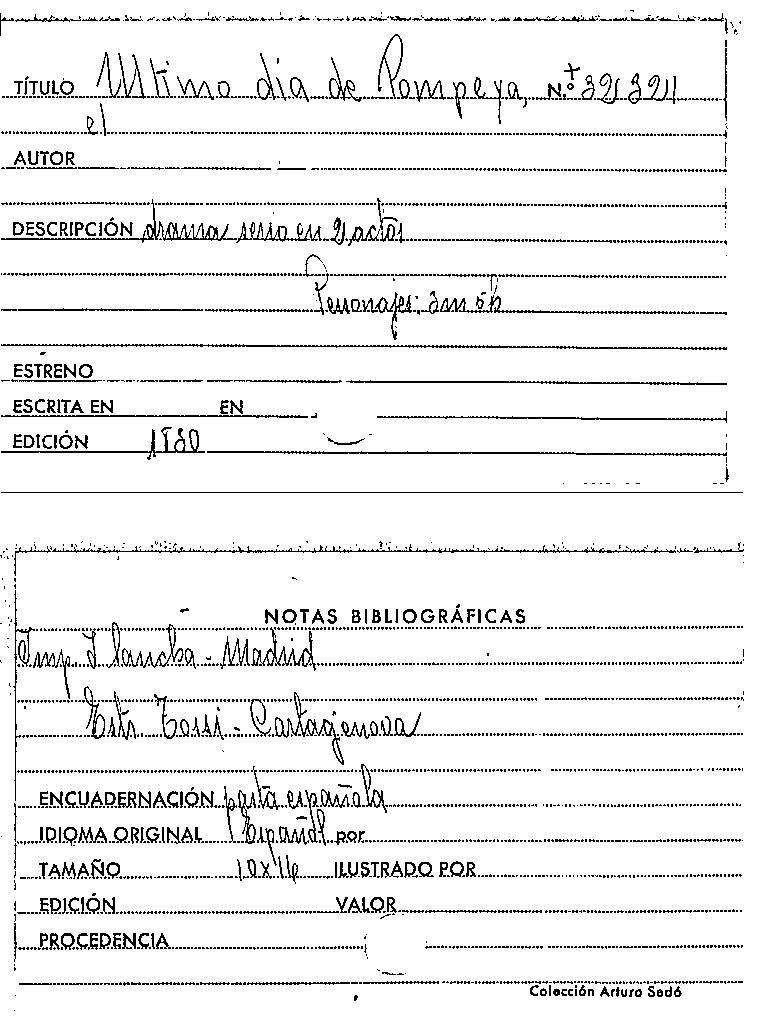 TÍTULO Ultimo dia de Pompeya, N.º
el
AUTOR
DESCRIPCIÓN drama serio en 2 actos
Personajes: 3m 5h
ESTRENO
ESCRITA EN EN
EDICIÓN 1830
NOTAS BIBLIOGRÁFICAS
Imp. I Sancha - Madrid
Estr. Tossi - Cartagenova
ENCUADERNACIÓN pasta española
IDIOMA ORIGINAL Español por
TAMAÑO 10x16 ILUSTRADO POR
EDICIÓN VALOR
PROCEDENCIA
Colección Arturo Sedó